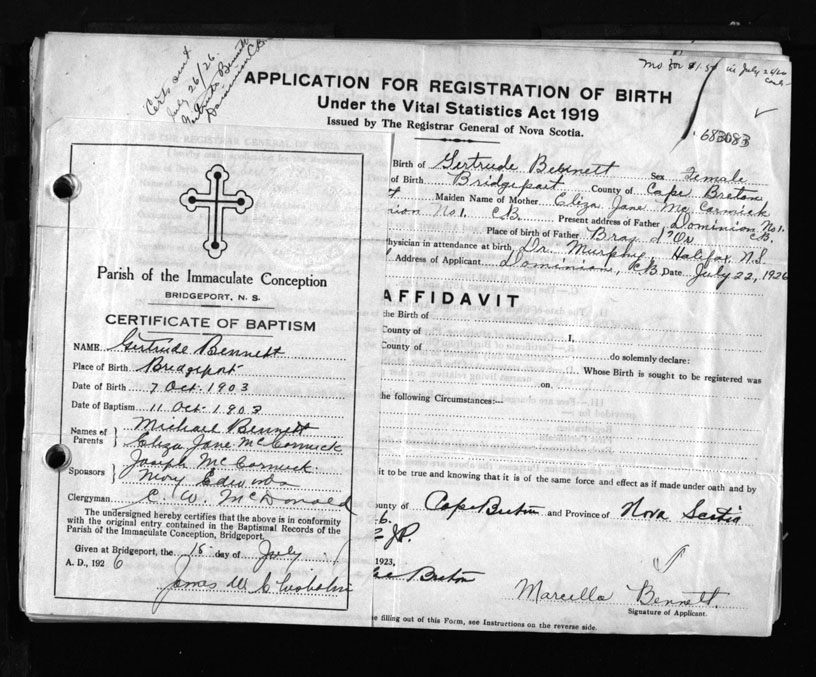 Certs sent
July 26/26
Gertrude Bennett
Dominion C B
Mo for $1.50 in July 26/26
APPLICATION FOR REGISTRATION OF BIRTH
Under the Vital Statistics Act 1919
Issued by The Registrar General of Nova Scotia.
683083
Parish of the Immaculate Conception
BRIDGEPORT, N. S.
CERTIFICATE OF BAPTISM
NAME Gertrude Bennett
Place of Birth Bridgeport
Date of Birth 7 Oct. 1903
Date of Baptism 11 Oct. 1903
Names of Parents } Michael Bennett
Eliza Jane McCormick
Sponsors } Joseph McCormick.
Mary Edwards
Clergyman C. W. McDonald
The undersigned hereby certifies that the above is in conformity
with the original entry contained in the Baptismal Records of the
Parish of the Immaculate Conception, Bridgeport.
Given at Bridgeport, the 15 day of July
A. D., 192 6
James W. Chisholm
Birth of Gertrude Bebinett Sex Female
of Birth Bridgeport County of Cape Breton
Maiden Name of Mother Eliza Jane McCormick
nion No 1. C B. Present address of Father Dominion No 1. C.B.
Place of birth of Father Bray d'Or
hysician in attendance at birth Dr. Murphy, Halifax, N.S.
Address of Applicant Dominion, C B. Date July 22, 1926
AFFIDAVIT
the Birth of
County of I,
County of do solemnly declare:
Whose Birth is sought to be registered was
on
he following Circumstances:—
it to be true and knowing that it is of the same force and effect as if made under oath and by
unty of Cape Breton and Province of Nova Scotia
6.
J.P.
1923,
Breton
Marcella Bennett
Signature of Applicant.
e filling out of this Form, see Instructions on the reverse side.